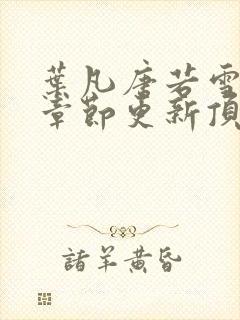 葉凡唐若雪
章節更新頂
諸羊黄昏